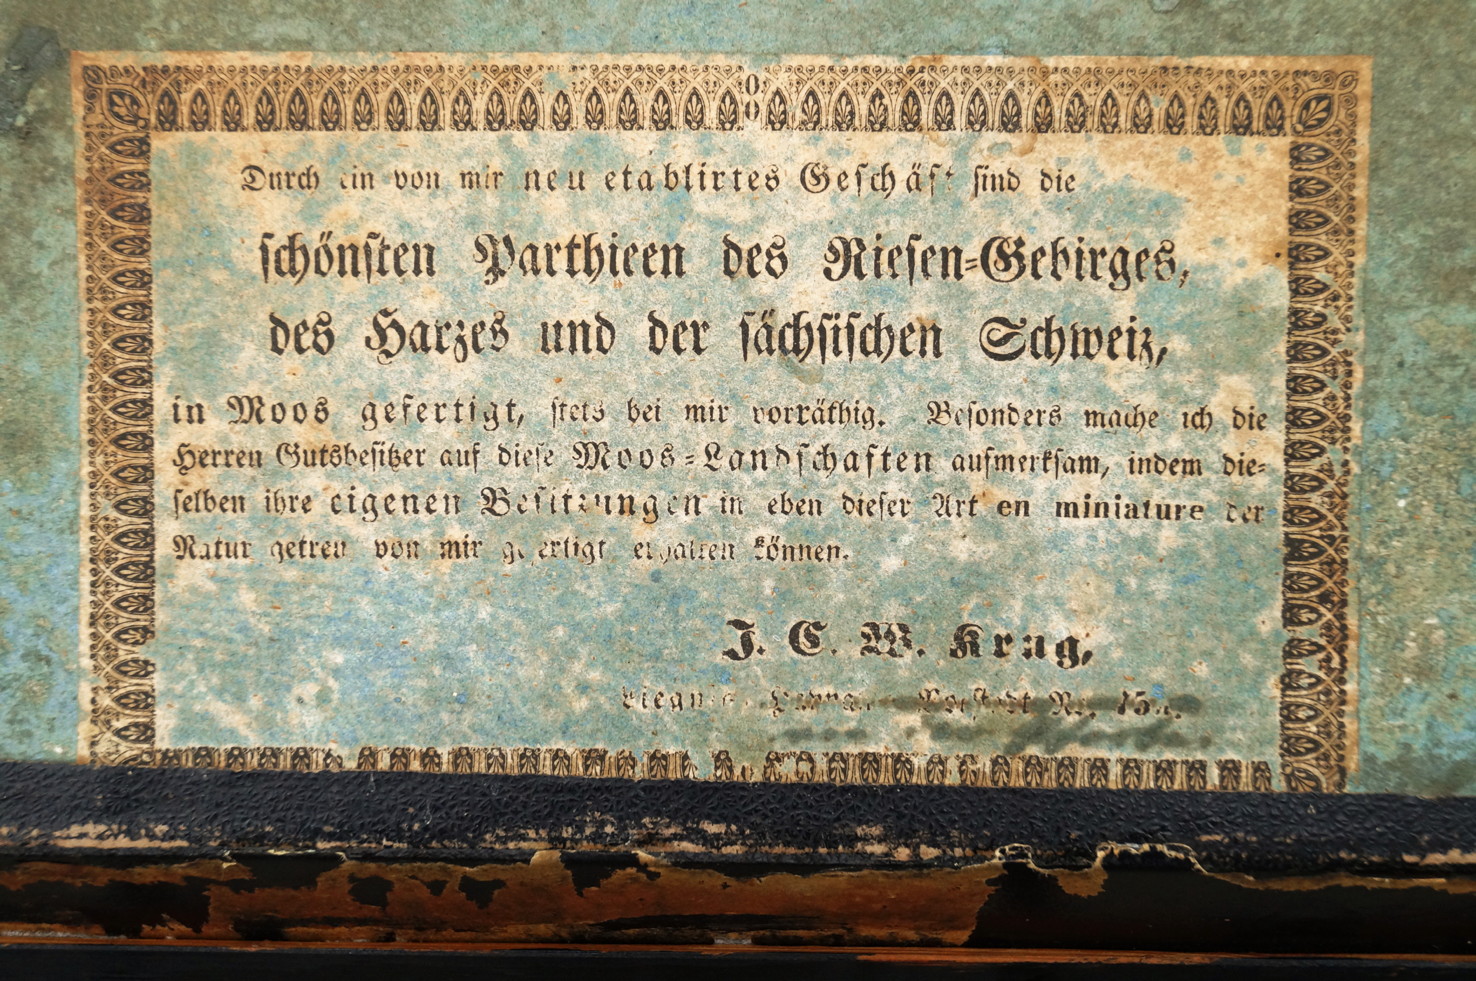 Durch ein von mir neu etablirtes Geschäft sind die
schönsten Parthieen des Riesen-Gebirges,
des Harzes und der sächsischen Schweiz,
in Moos gefertigt, stets bei mir vorräthig. Besonders mache ich die
Herren Gutsbesitzer auf diese Moos-Landschaften aufmerksam, indem die-
selben ihre eigenen Besitzungen in eben dieser Art en miniature der
Natur getreu von mir gefertigt erhalten können.
J. C. W. Krug,